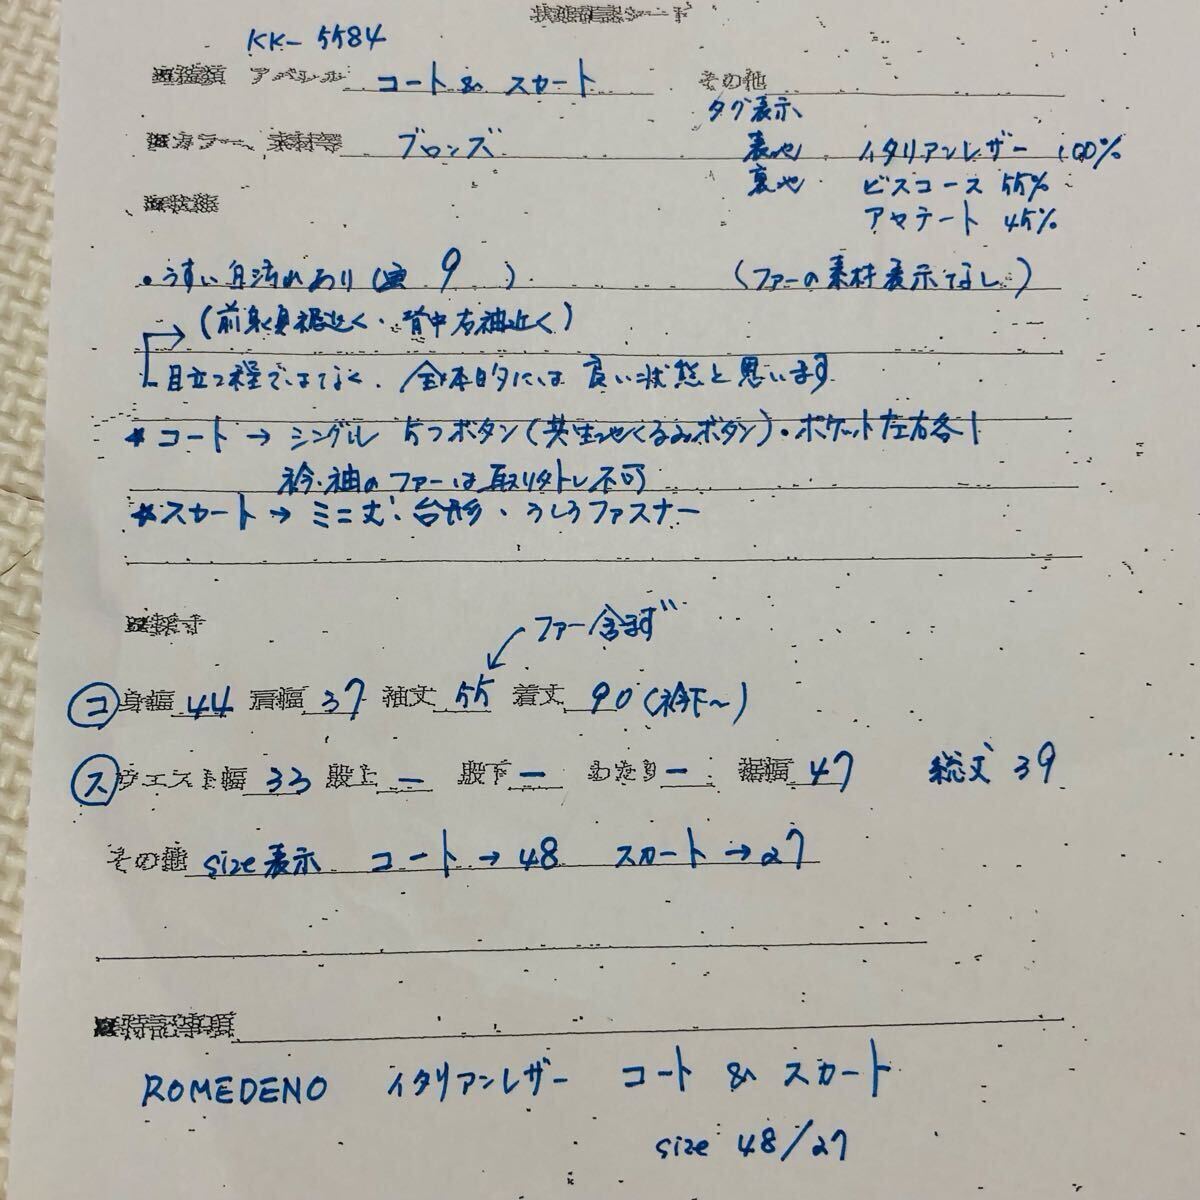 状態確認シート
KK-5584
種類 アパレル コート & スカート その他
タグ表示
カラー、素材等 ブロンズ 表地 イタリアンレザー 100%
裏地 ビスコース 55%
アセテート 45%
状態
・うすい白汚れあり( 9 ) (ファーの素材表示なし)
(前身身裾近く・背中右袖近く)
目立つ程ではなく、全体的には良い状態と思います
* コート → シングル 5つボタン(共生地くるみボタン)・ポケット左右各1
衿・袖のファーは取り外し不可
* スカート → ミニ丈・台形・うしろファスナー
採寸
ファー含まず
コ 身幅 44 肩幅 37 袖丈 55 着丈 90 (衿下~)
ス ウエスト幅 33 股上 ー 股下 ー わたり ー 裾幅 47 総丈 39
その他 size表示 コート → 48 スカート → 27
特記事項
ROMEDENO イタリアンレザー コート & スカート
size 48/27